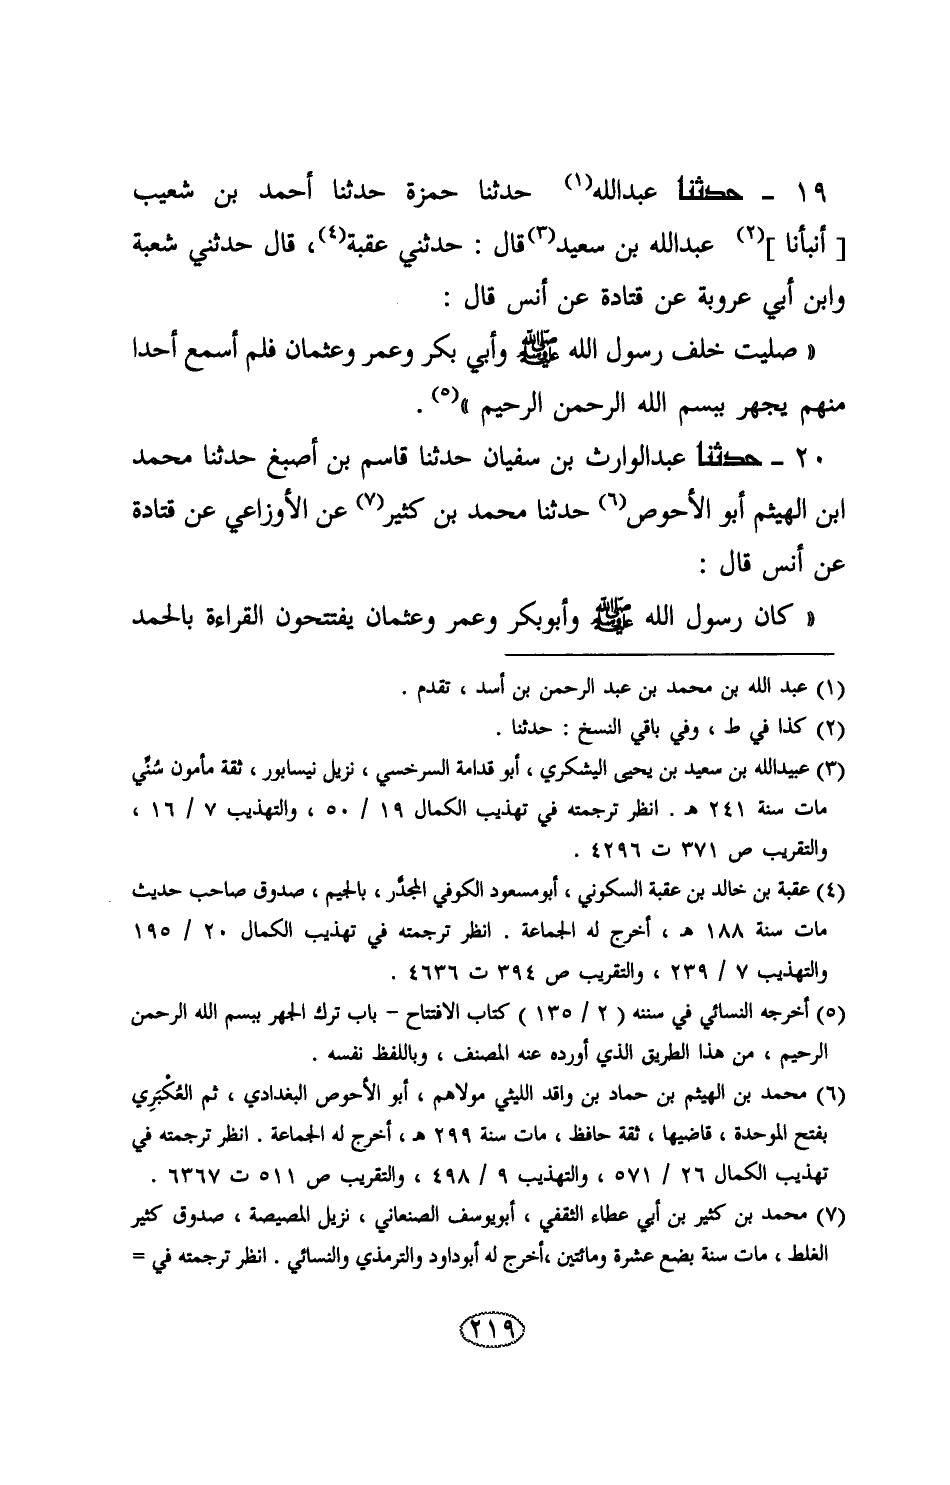 ١٩ ـ حدثنا عبدالله(١) حدثنا حمزة حدثنا أحمد بن شعيب
[ أنبأنا ](٢) عبدالله بن سعيد(٣) قال : حدثني عقبة(٤)، قال حدثني شعبة
وابن أبي عروبة عن قتادة عن أنس قال :
« صليت خلف رسول الله ﷺ وأبي بكر وعمر وعثمان فلم أسمع أحدا
منهم يجهر ببسم الله الرحمن الرحيم »(٥) .
٢٠ ـ حدثنا عبدالوارث بن سفيان حدثنا قاسم بن أصبغ حدثنا محمد
ابن الهيثم أبو الأحوص(٦) حدثنا محمد بن كثير(٧) عن الأوزاعي عن قتادة
عن أنس قال :
« كان رسول الله ﷺ وأبوبكر وعمر وعثمان يفتتحون القراءة بالحمد
(١) عبد الله بن محمد بن عبد الرحمن بن أسد ، تقدم .
(٢) كذا في ط ، وفي باقي النسخ : حدثنا .
(٣) عبيدالله بن سعيد بن يحيى اليشكري ، أبو قدامة السرخسي ، نزيل نيسابور ، ثقة مأمون سُنّي
مات سنة ٢٤١ هـ . انظر ترجمته في تهذيب الكمال ١٩ / ٥٠ ، والتهذيب ٧ / ١٦ ،
والتقريب ص ٣٧١ ت ٤٢٩٦ .
(٤) عقبة بن خالد بن عقبة السكوني ، أبومسعود الكوفي المجدَّر ، بالجيم ، صدوق صاحب حديث
مات سنة ١٨٨ هـ ، أخرج له الجماعة . انظر ترجمته في تهذيب الكمال ٢٠ / ١٩٥
والتهذيب ٧ / ٢٣٩ ، والتقريب ص ٣٩٤ ت ٤٦٣٦ .
(٥) أخرجه النسائي في سننه ( ٢ / ١٣٥ ) كتاب الافتتاح – باب ترك الجهر ببسم الله الرحمن
الرحيم ، من هذا الطريق الذي أورده عنه المصنف ، وباللفظ نفسه .
(٦) محمد بن الهيثم بن حماد بن واقد الليثي مولاهم ، أبو الأحوص البغدادي ، ثم العُكْبَرِي
بفتح الموحدة ، قاضيها ، ثقة حافظ ، مات سنة ٢٩٩ هـ ، أخرج له الجماعة . انظر ترجمته في
تهذيب الكمال ٢٦ / ٥٧١ ، والتهذيب ٩ / ٤٩٨ ، والتقريب ص ٥١١ ت ٦٣٦٧ .
(٧) محمد بن كثير بن أبي عطاء الثقفي ، أبويوسف الصنعاني ، نزيل المصيصة ، صدوق كثير
الغلط ، مات سنة بضع عشرة ومائتين ،أخرج له أبوداود والترمذي والنسائي . انظر ترجمته في =
٢١٩